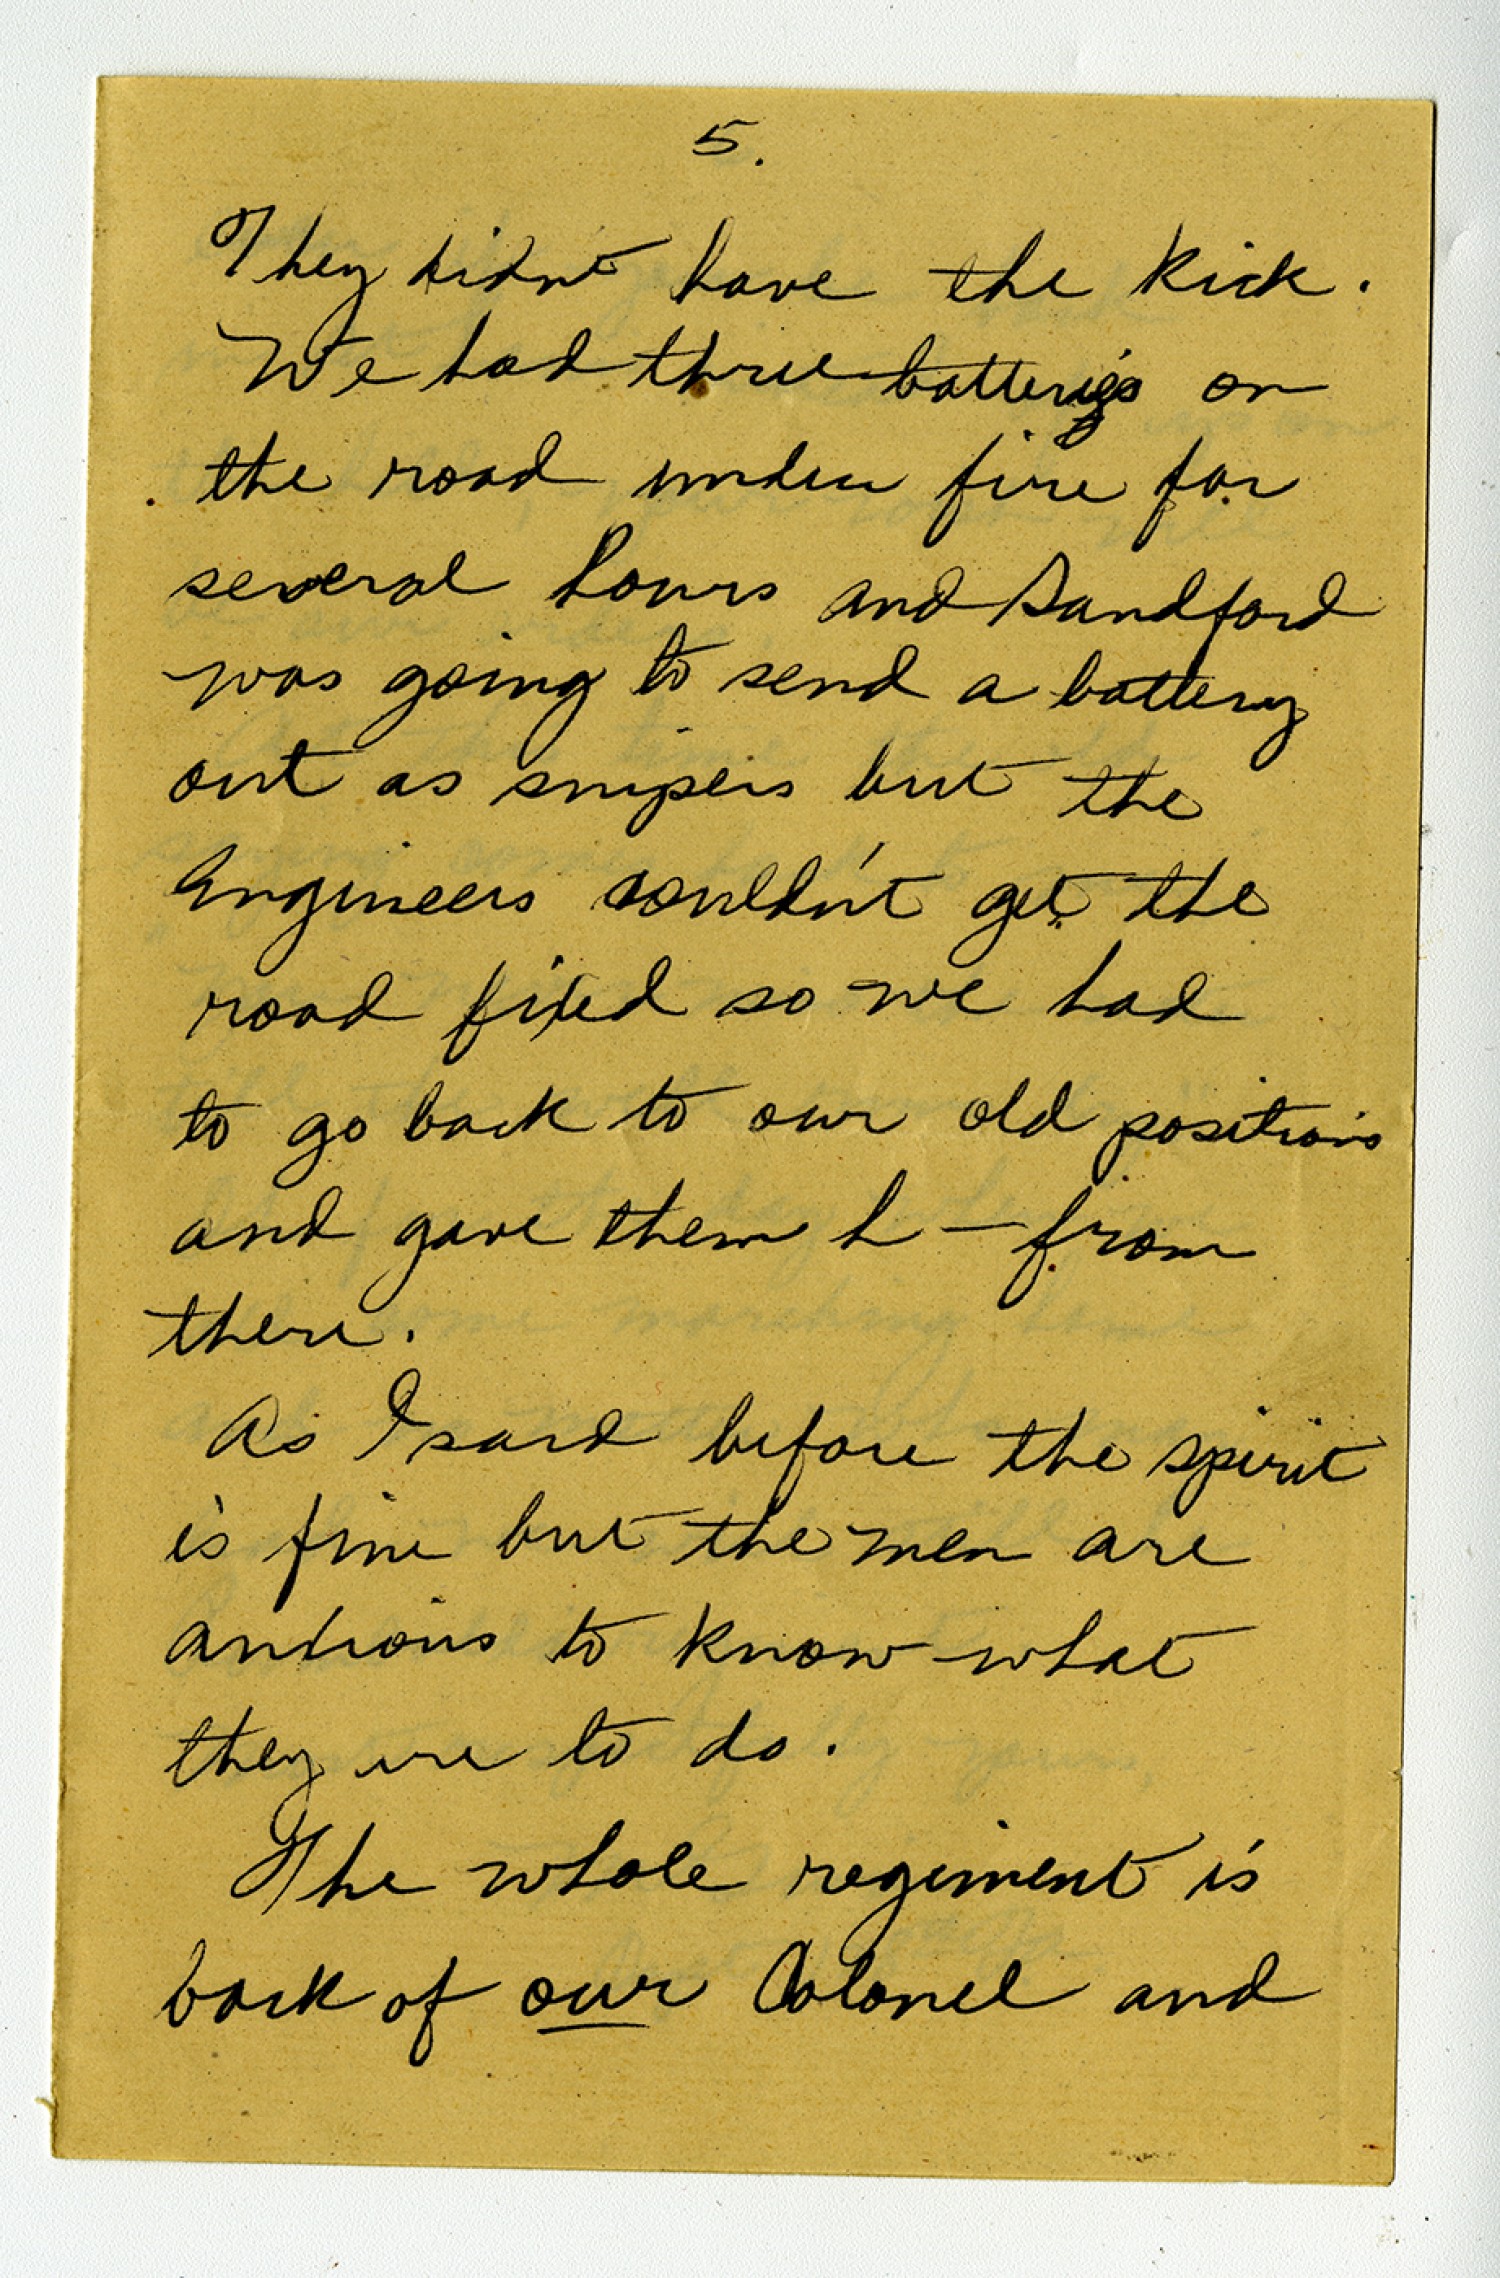 5.
They didn't have the kick.
We had three batteries on
the road under fire for
several hours and Sandford
was going to send a battery
out as snipers but the
Engineers couldn't get the
road fixed so we had
to go back to our old positions
and gave them h— from
there.
As I said before the spirit
is fine but the men are
anxious to know what
they are to do.
The whole regiment is
back of our Colonel and